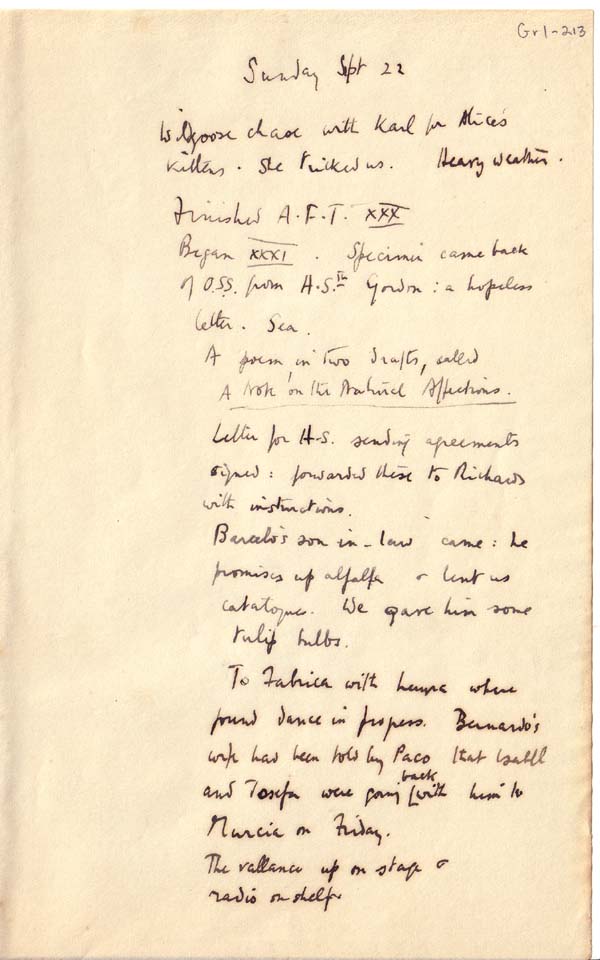 Gr1-213
Sunday Sept 22
Wildgoose chase with Karl for Alice's
kittens. She tricked us. Heavy weather.
Finished A.F.T. XXX
Began XXXI. Specimen came back
of O.S.S. from H.S.th Gordon: a hopeless
letter. Sea.
A poem, in two drafts, called
A Note on the Natural Affections.
Letter for H-S. sending agreements
signed: forwarded these to Richards
with instructions.
Barcelo's son-in-law came: he
promises up alfalfa & lent us
catalogues. We gave him some
tulip bulbs.
To Fabrica with Laura where
found dance in progress. Bernardo's
wife had been told by Paco that Isabel
and Josefa were going back with him to
Murcia on Friday.
The vallance up on stage &
radio on shelf